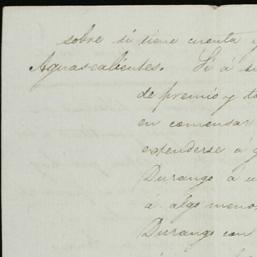 sobre si tiene cuenta
Aguascalientes. Si á su
de premio y to
en comensar
estenderse a
Durango á u
a algo meno
Durango con